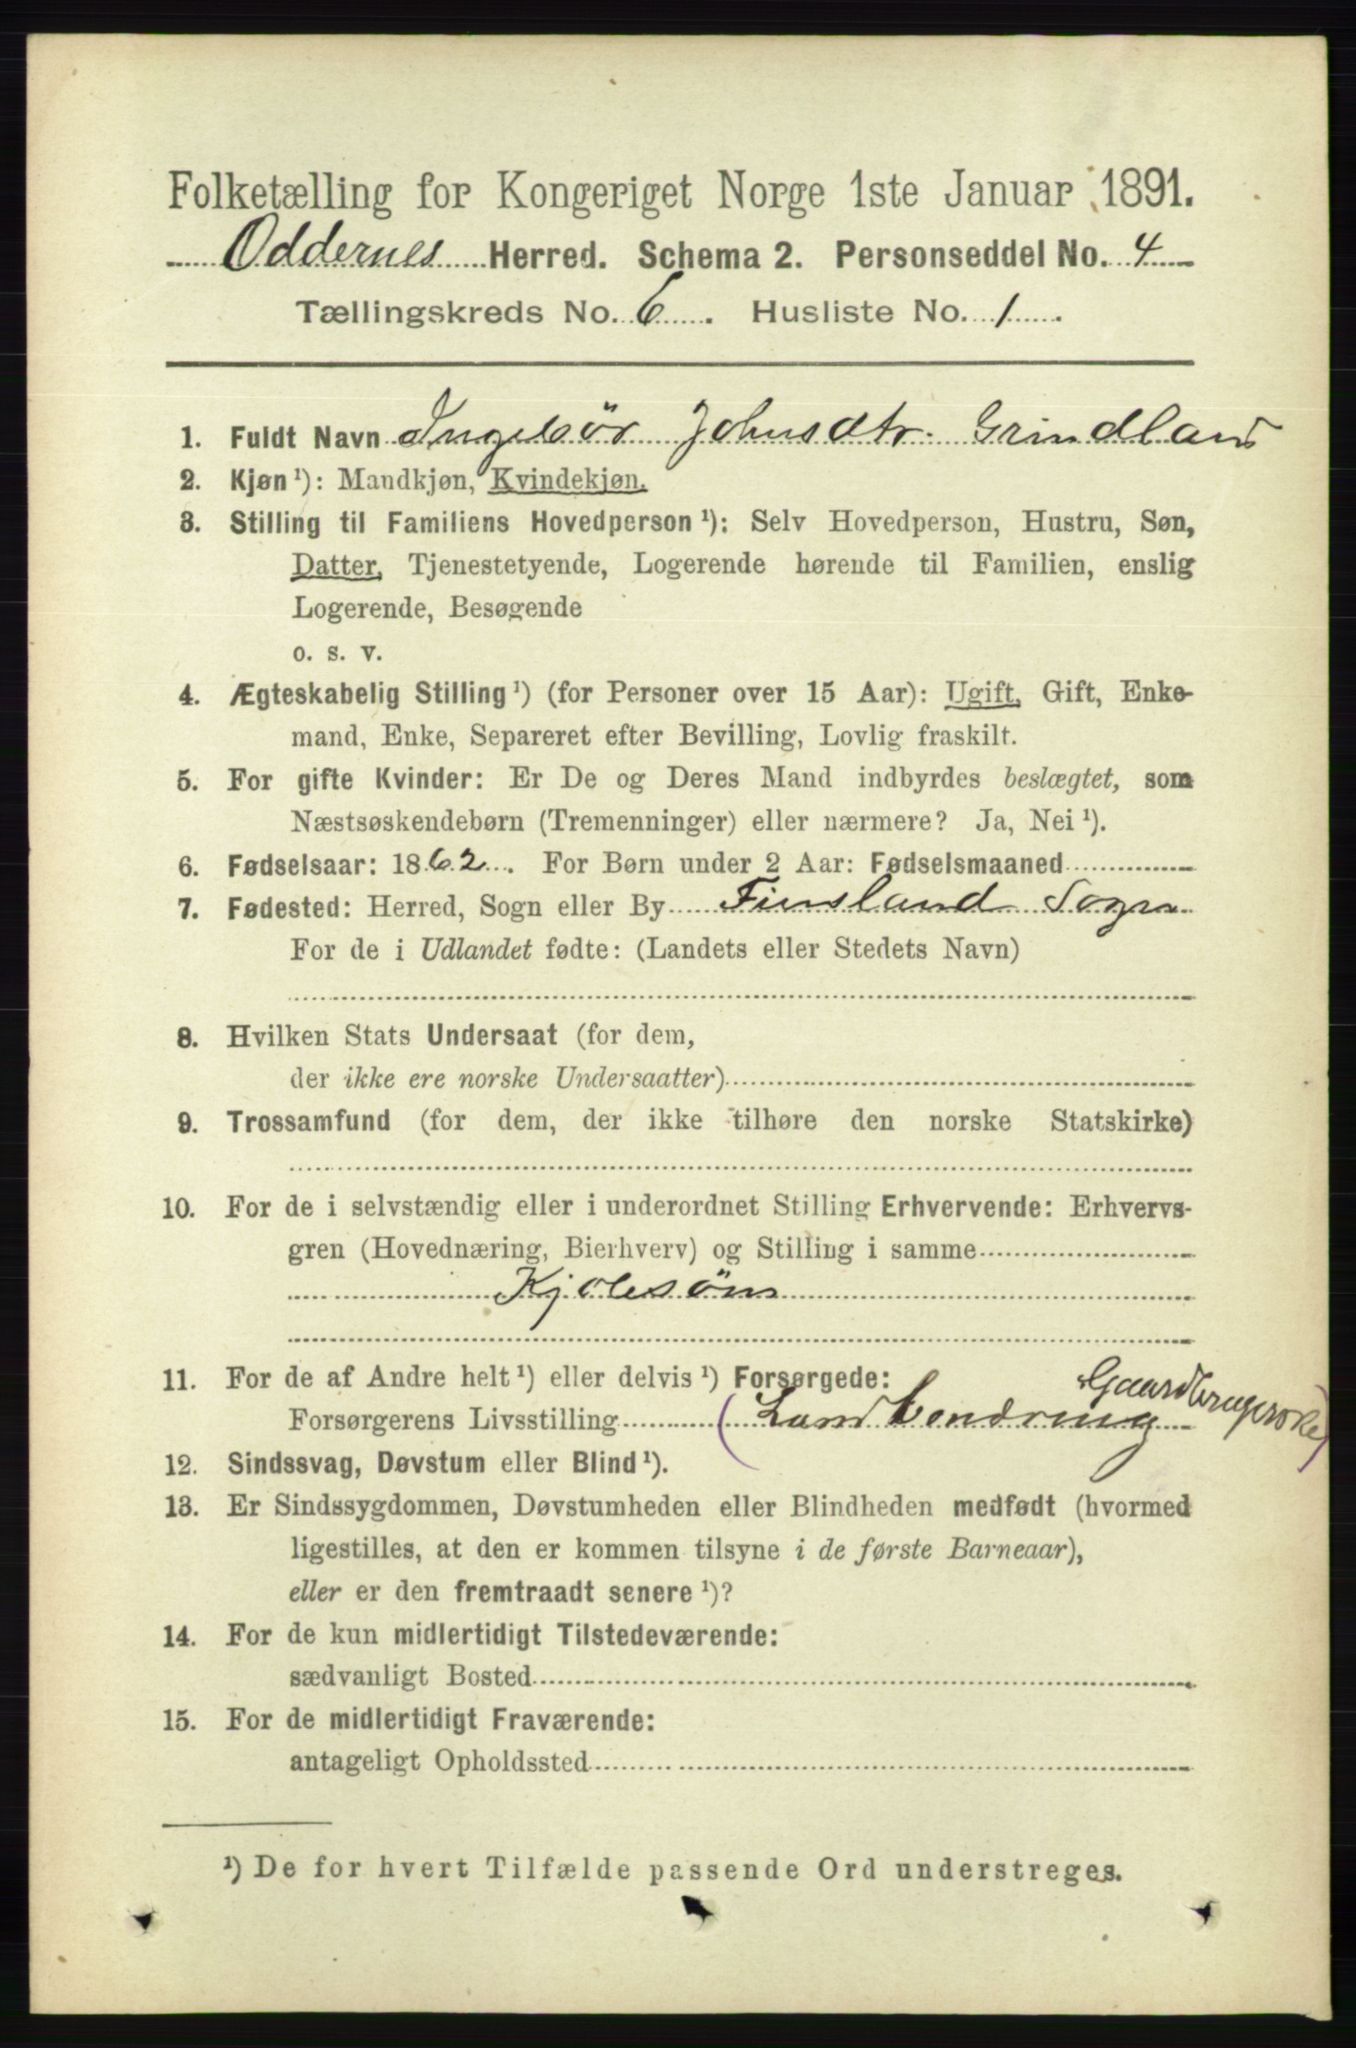 Folketælling for Kongeriget Norge 1ste Januar 1891.
Oddernes Herred. Schema 2. Personseddel No. 4
Tællingskreds No. 6. Husliste No. 1.
1. Fuldt Navn Ingebør Johnsdtr. Grindland
2. Kjøn ¹): Mandkjøn, Kvindekjøn.
3. Stilling til Familiens Hovedperson ¹): Selv Hovedperson, Hustru, Søn,
Datter, Tjenestetyende, Logerende hørende til Familien, enslig
Logerende, Besøgende
o. s. v.
4. Ægteskabelig Stilling ¹) (for Personer over 15 Aar): Ugift, Gift, Enke-
mand, Enke, Separeret efter Bevilling, Lovlig fraskilt.
5. For gifte Kvinder: Er De og Deres Mand indbyrdes beslægtet, som
Næstsøskendebørn (Tremenninger) eller nærmere? Ja, Nei ¹).
6. Fødselsaar: 1862. For Børn under 2 Aar: Fødselsmaaned
7. Fødested: Herred, Sogn eller By Finsland Sogn
For de i Udlandet fødte: (Landets eller Stedets Navn)
8. Hvilken Stats Undersaat (for dem,
der ikke ere norske Undersaatter)
9. Trossamfund (for dem, der ikke tilhøre den norske Statskirke)
10. For de i selvstændig eller i underordnet Stilling Erhvervende: Erhvervs-
gren (Hovednæring, Bierhverv) og Stilling i samme
Kjolesøm
11. For de af Andre helt ¹) eller delvis ¹) Forsørgede:
Forsørgerens Livsstilling (Land
12. Sindssvag, Døvstum eller Blind ¹).
13. Er Sindssygdommen, Døvstumheden eller Blindheden medfødt (hvormed
ligestilles, at den er kommen tilsyne i de første Barneaar),
eller er den fremtraadt senere ¹)?
14. For de kun midlertidigt Tilstedeværende:
sædvanligt Bosted
15. For de midlertidigt Fraværende:
antageligt Opholdssted
¹) De for hvert Tilfælde passende Ord understreges.